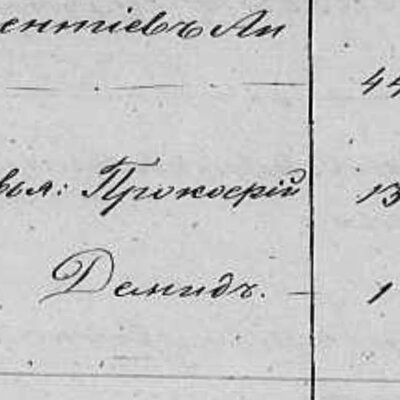 ентіевъ Ан
44
вья: Прокофій 13
Демидъ. – 1